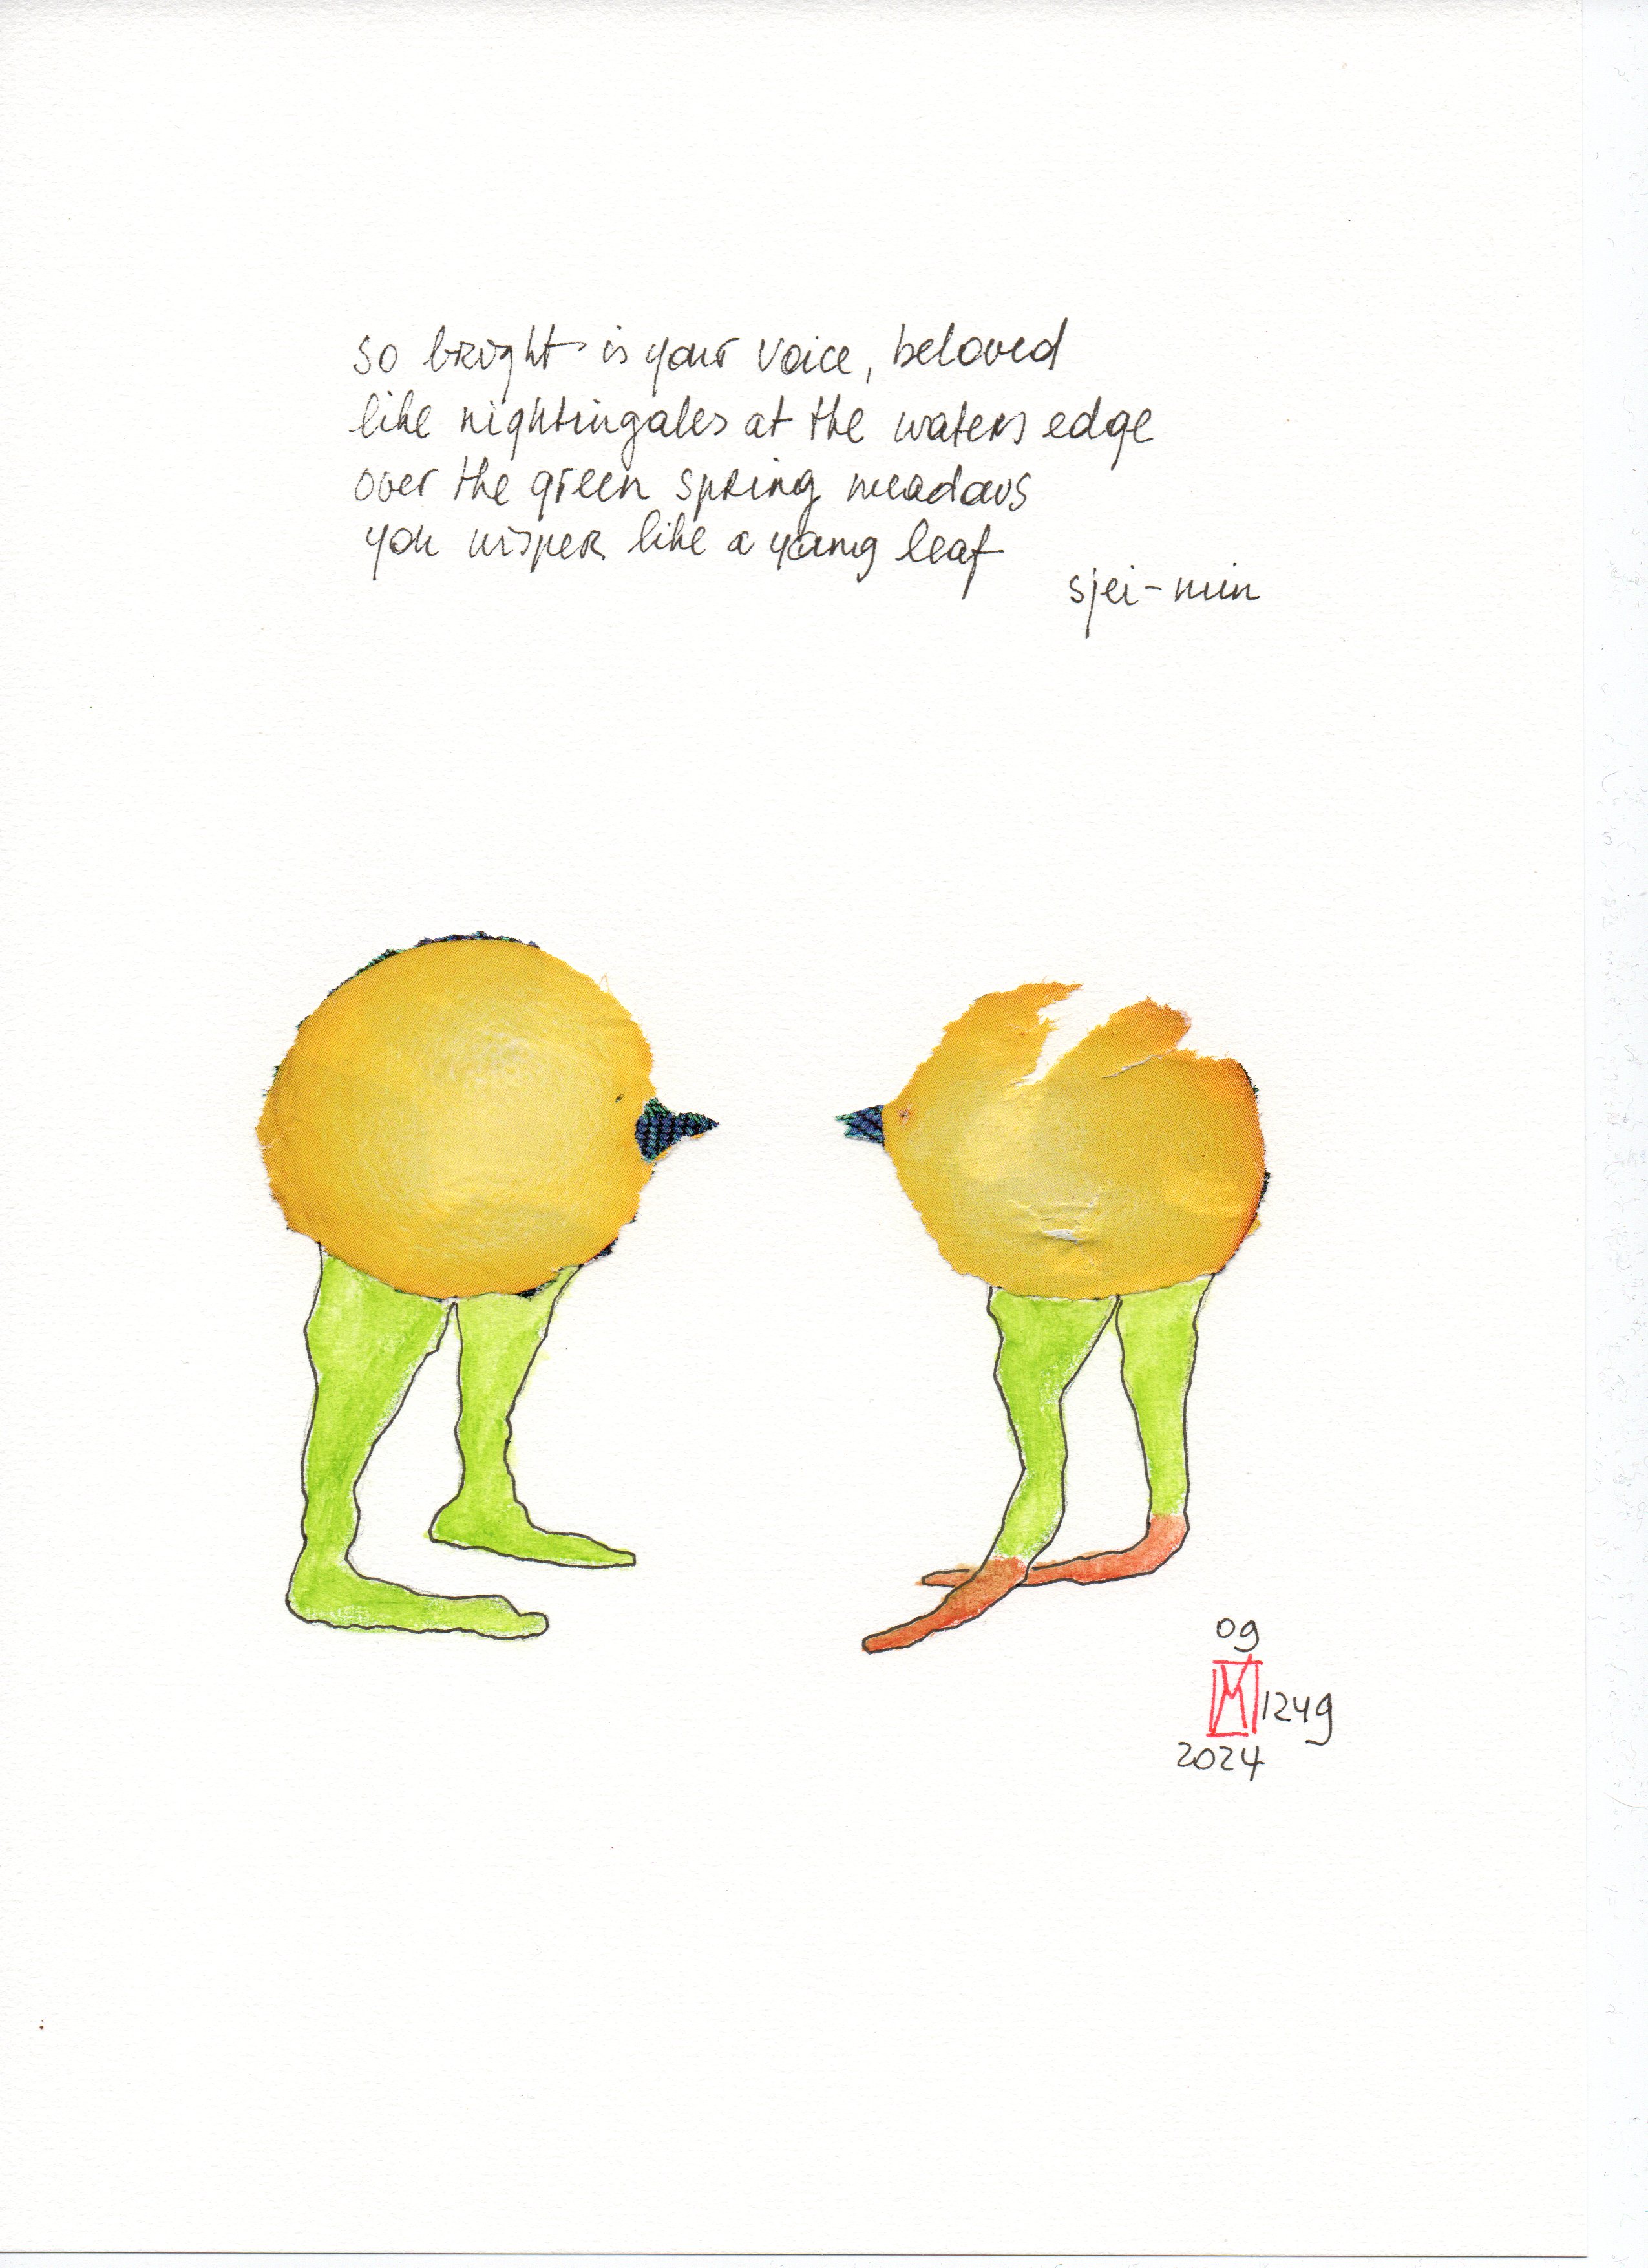 so bright is your voice, beloved
like nightingales at the waters edge
over the green spring meadows
you wisper like a young leaf
sjei-min
09
M 1249
2024